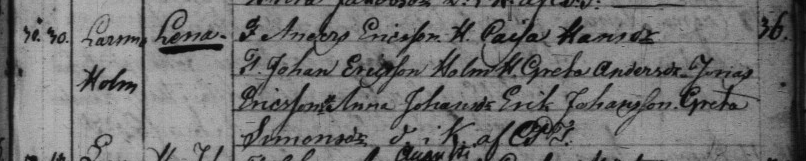 30. 30. Larsmo Lena. F. Anders Ericsson H. Caisa Hansdr 36.
Holm F. Johan Ericsson Holm H. Greta Andersdr Jonas
Ericsson Anna Johansdr Erik Johansson Greta
Simonsdr d. i K. af